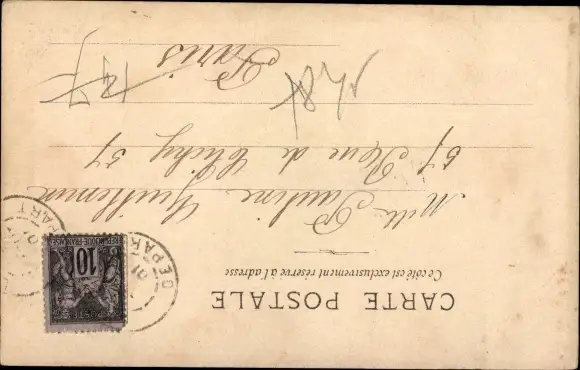 CARTE POSTALE
Ce côté est exclusivement réservé à l'adresse
Mlle Pauline Guillemin
57 Rue de Clichy 57
Paris
POSTES
10
REPUBLIQUE FRANÇAISE
DEPART
DEPART